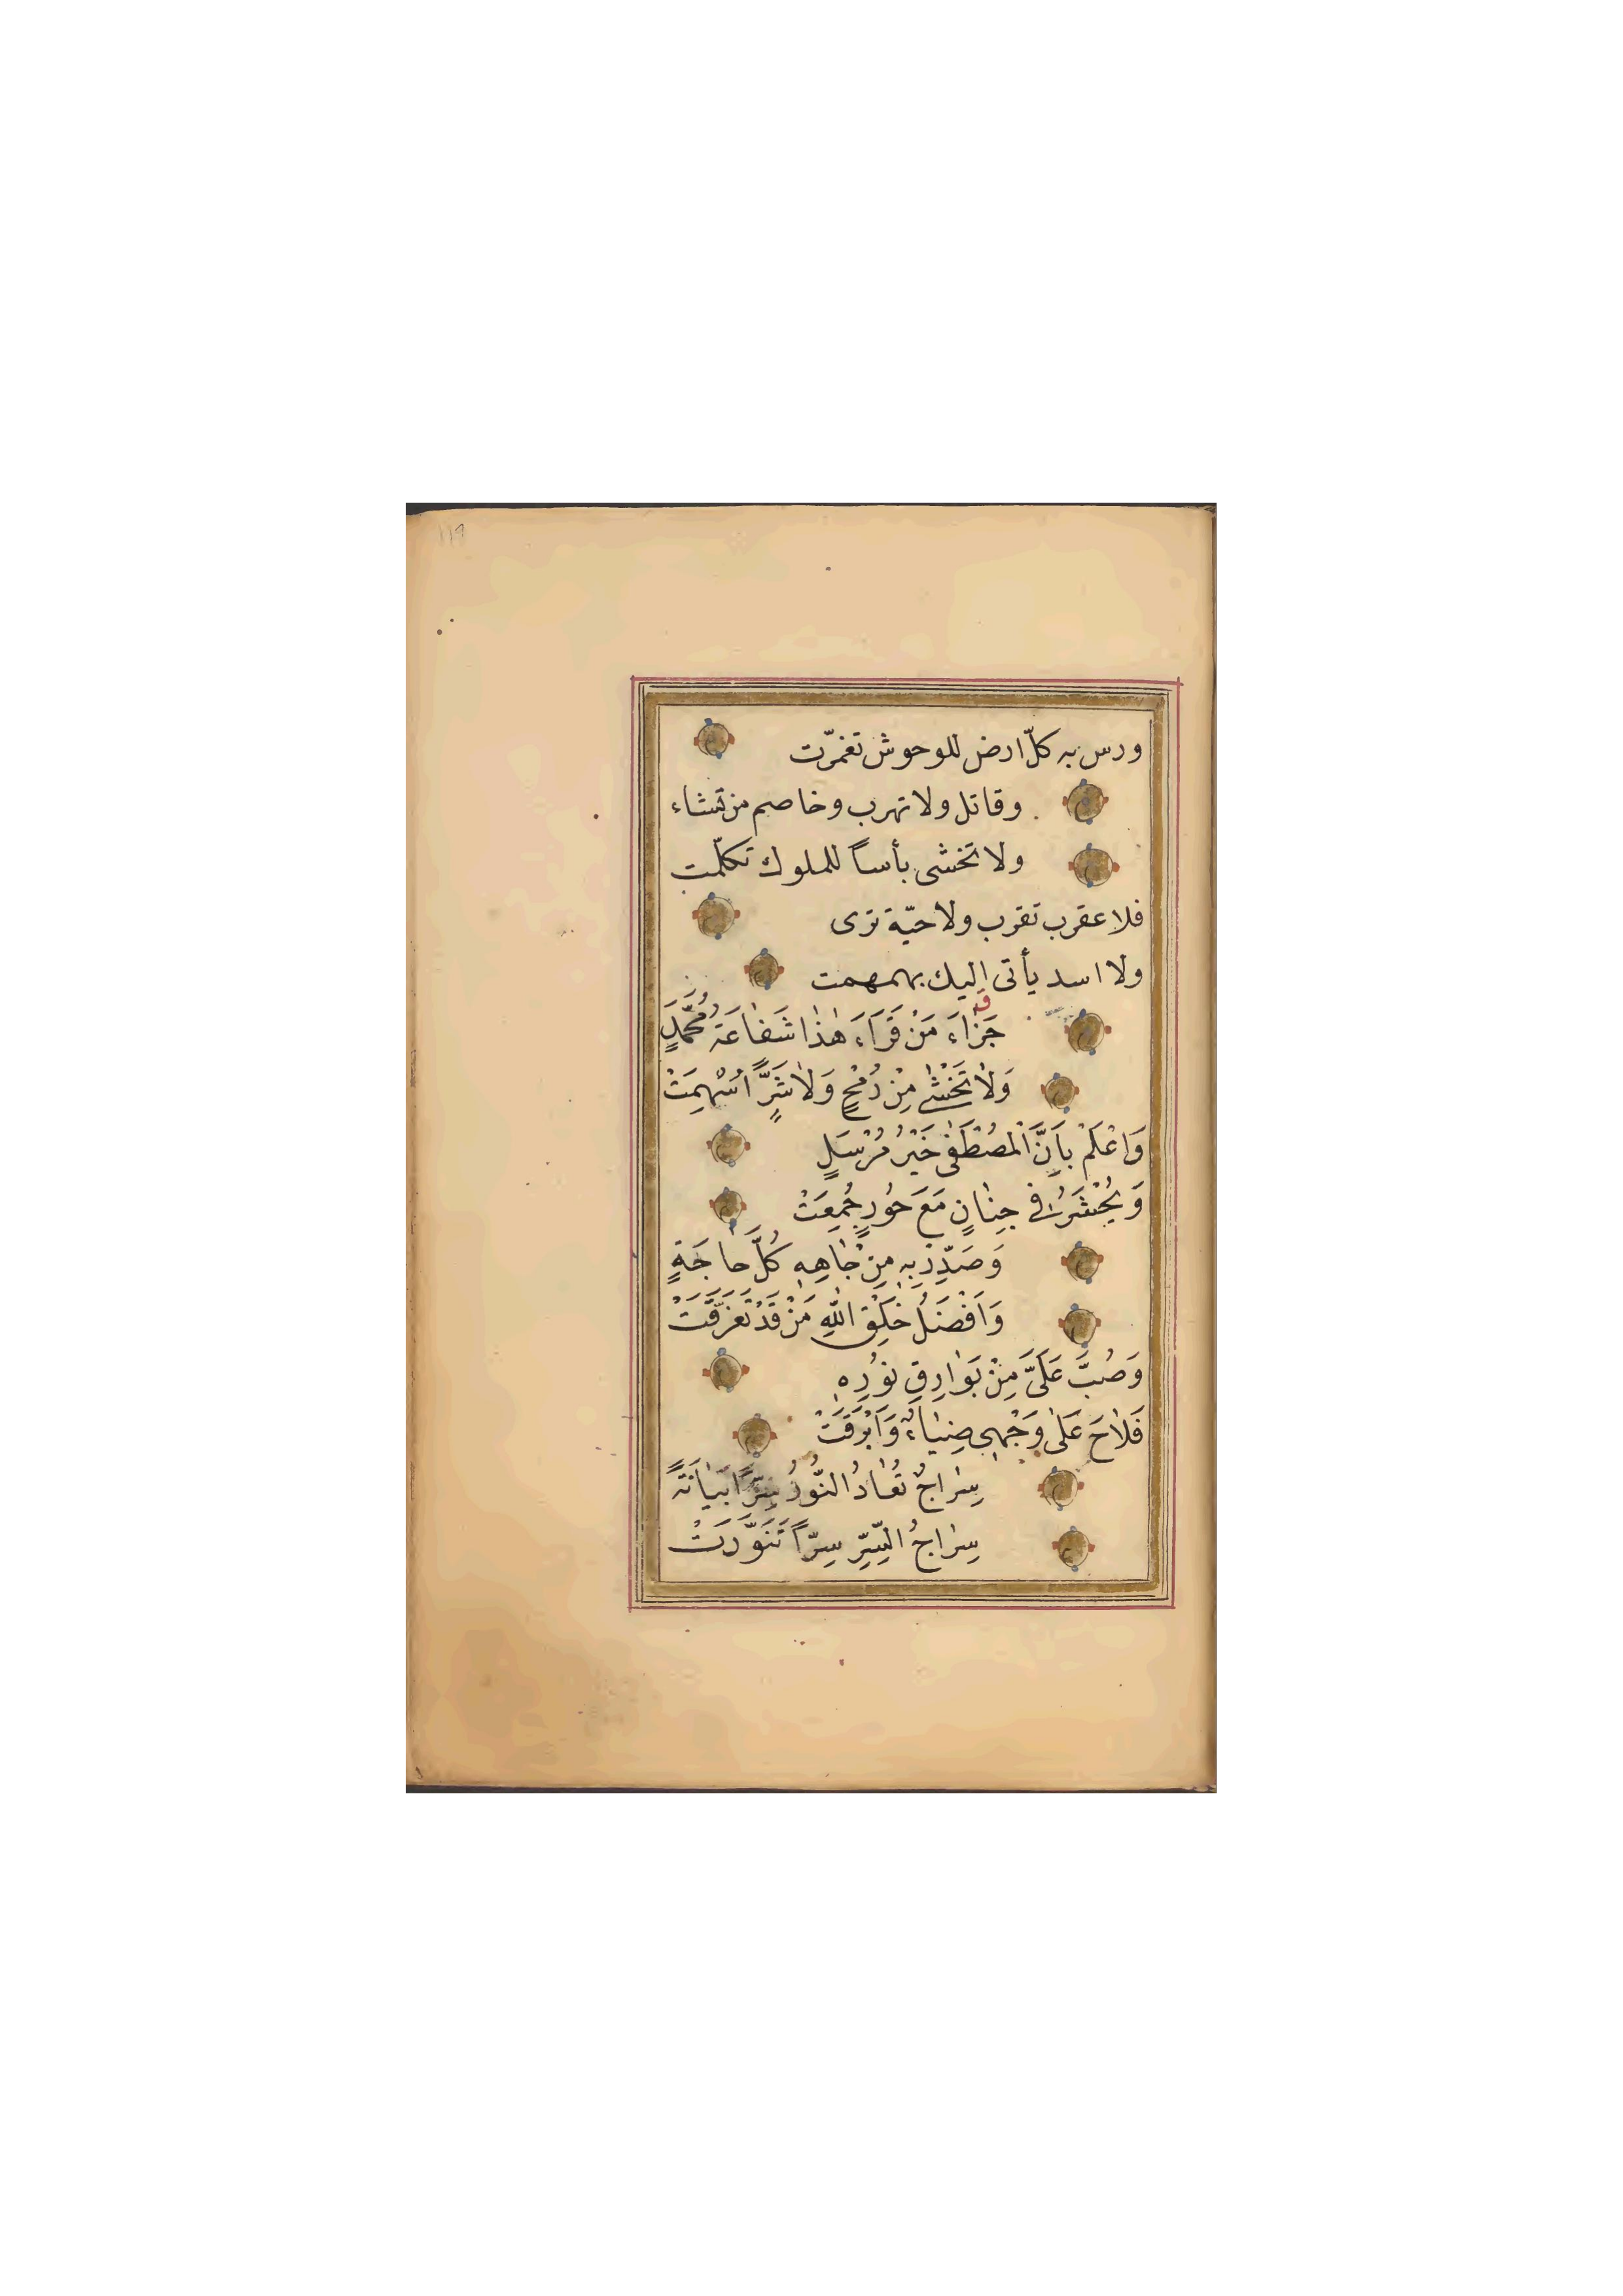 ١١٩
ودس به كلّ ارض للوحوش تغمّرت
وقاتل ولا تهرب وخاصم من تشاء
ولا تخشى بأساً للملوك تكلّمت
فلا عقرب تقرب ولا حيّة ترى
ولا اسد يأتى اليك بهمهمت
جَزَاءَ مَنْ قَرَاَءَ هٰذَا شَفَاعَةُ مُحَمَّدٍ
وَلاٰ تَخْشٰى مِنْ رُمْحٍ وَلاٰ شَرًّ اَسْهِمَتْ
وَاعْلَمْ بِاَنَّ الْمُصْطَفٰى خَيْرُ مُرْسَلٍ
وَيُحْشَرُ فى جِنٰانٍ مَعَ حُورٍ جُمِعَتْ
وَصَدِّرْ بِهِ مِنْ جٰاهِهِ كُلَّ حاجَةٍ
وَاَفْضَلُ خَلْقِ اللّٰهِ مَنْ قَدْ تَعَرَّفَتْ
وَصُبَّ عَلَىَّ مِنْ بَوٰارِقِ نُورِهِ
فَلاٰحَ عَلٰى وَجْهِى ضِيٰاءٌ وَاَبْرَقَتْ
سِرٰاجٌ تُقٰادُ النُّورُ سِرًّا بَيٰانَةً
سِرٰاجُ السِّرِّ سِرّاً تَنَوَّرَتْ